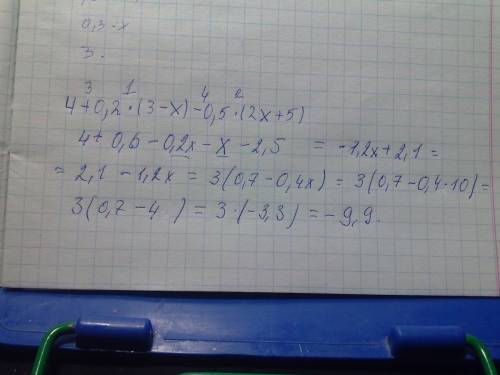 0,3-x
3.
3 1 4 2
4+0,2·(3-x)-0,5·(2x+5)
4+0,6-0,2x-x-2,5 = -1,2x+2,1=
= 2,1 -1,2x = 3(0,7-0,4x) = 3(0,7-0,4·10)=
3(0,7-4 ) = 3·(-3,3) = -9,9.